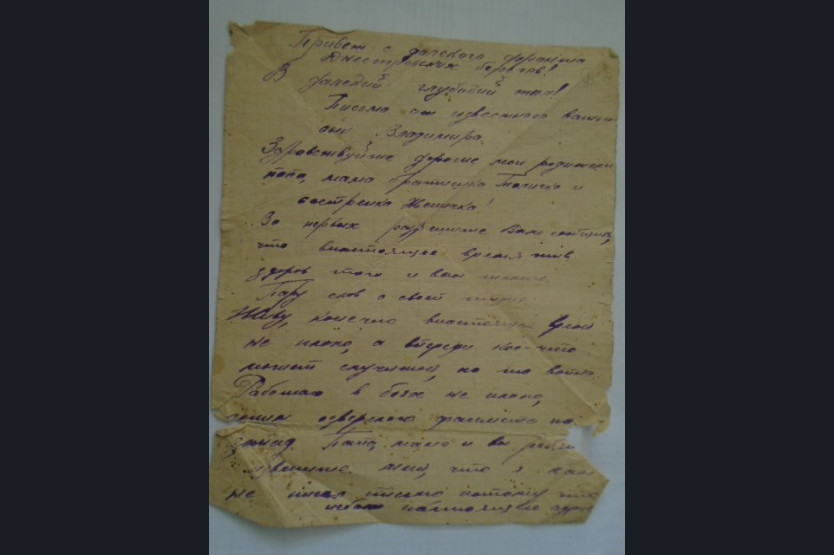 Привет с далекого фронта
Днестровских берегов!
В далекий глубокий тыл!
Письмо от известного вашего
Владимира.
Здравствуйте дорогие мои родители
папа, мама братишка Толичка и
сестренка Женичка!
За первых разрешите Вам сообщить,
что внастоящее время жив
здоров того и вам желаю.
Пару слов о своей жизни.
Живу, конечно внастоящее время
не плохо, а впереди кое-что
может случится, но это война.
Работаю в боях не плохо,
гоним озверелого фашиста на
запад. Папа, мама и вы
извените меня, что я вам
не писал письма потому что
небыло адреса